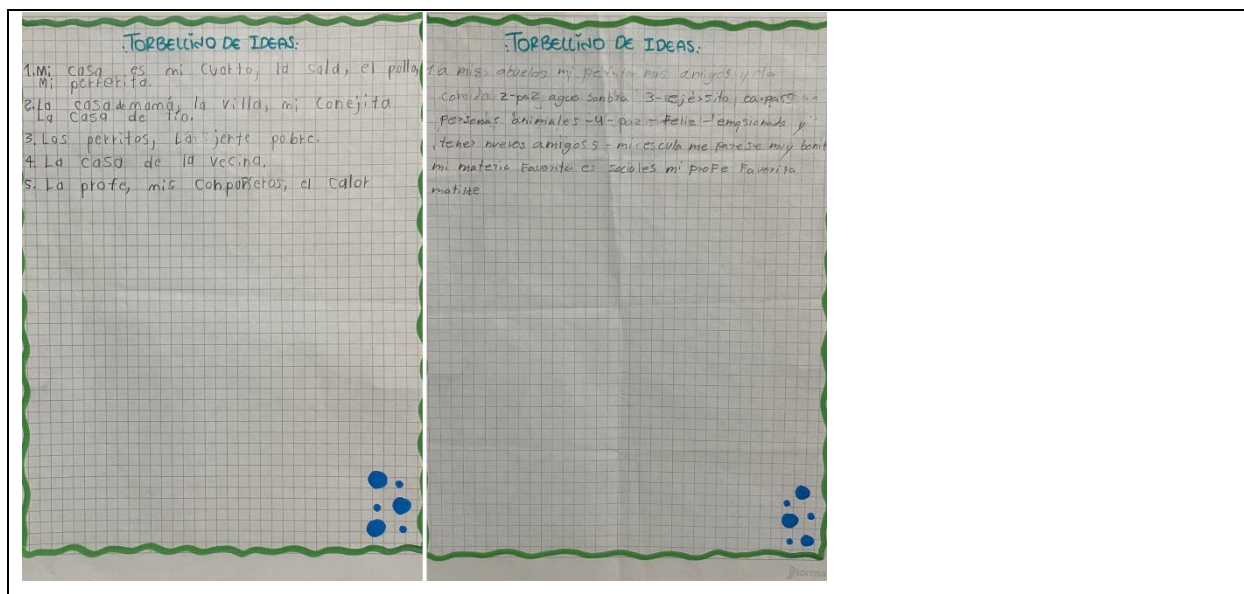 .TORBELLINO DE IDEAS.
1. Mi casa es mi cuarto, la sala, el pollo,
Mi perrerita.
2. La casa de mamá, la villa, mi conejita
La casa de tío.
3. Los perritos, La jente pobre.
4. La casa de la vecina.
5. La profe, mis conpañeros, el calor
.TORBELLINO DE IDEAS.
1 a mis abuelos mi mis amigos y la
comida 2-paz agua sonbra 3-ejersito,
personas animales -4- paz - feliz - emosionada y
tener nuevos amigos 5 - mi escula me parese muy bonit
mi materia Favorita es sociales mi profe Favorita
matilde
norma